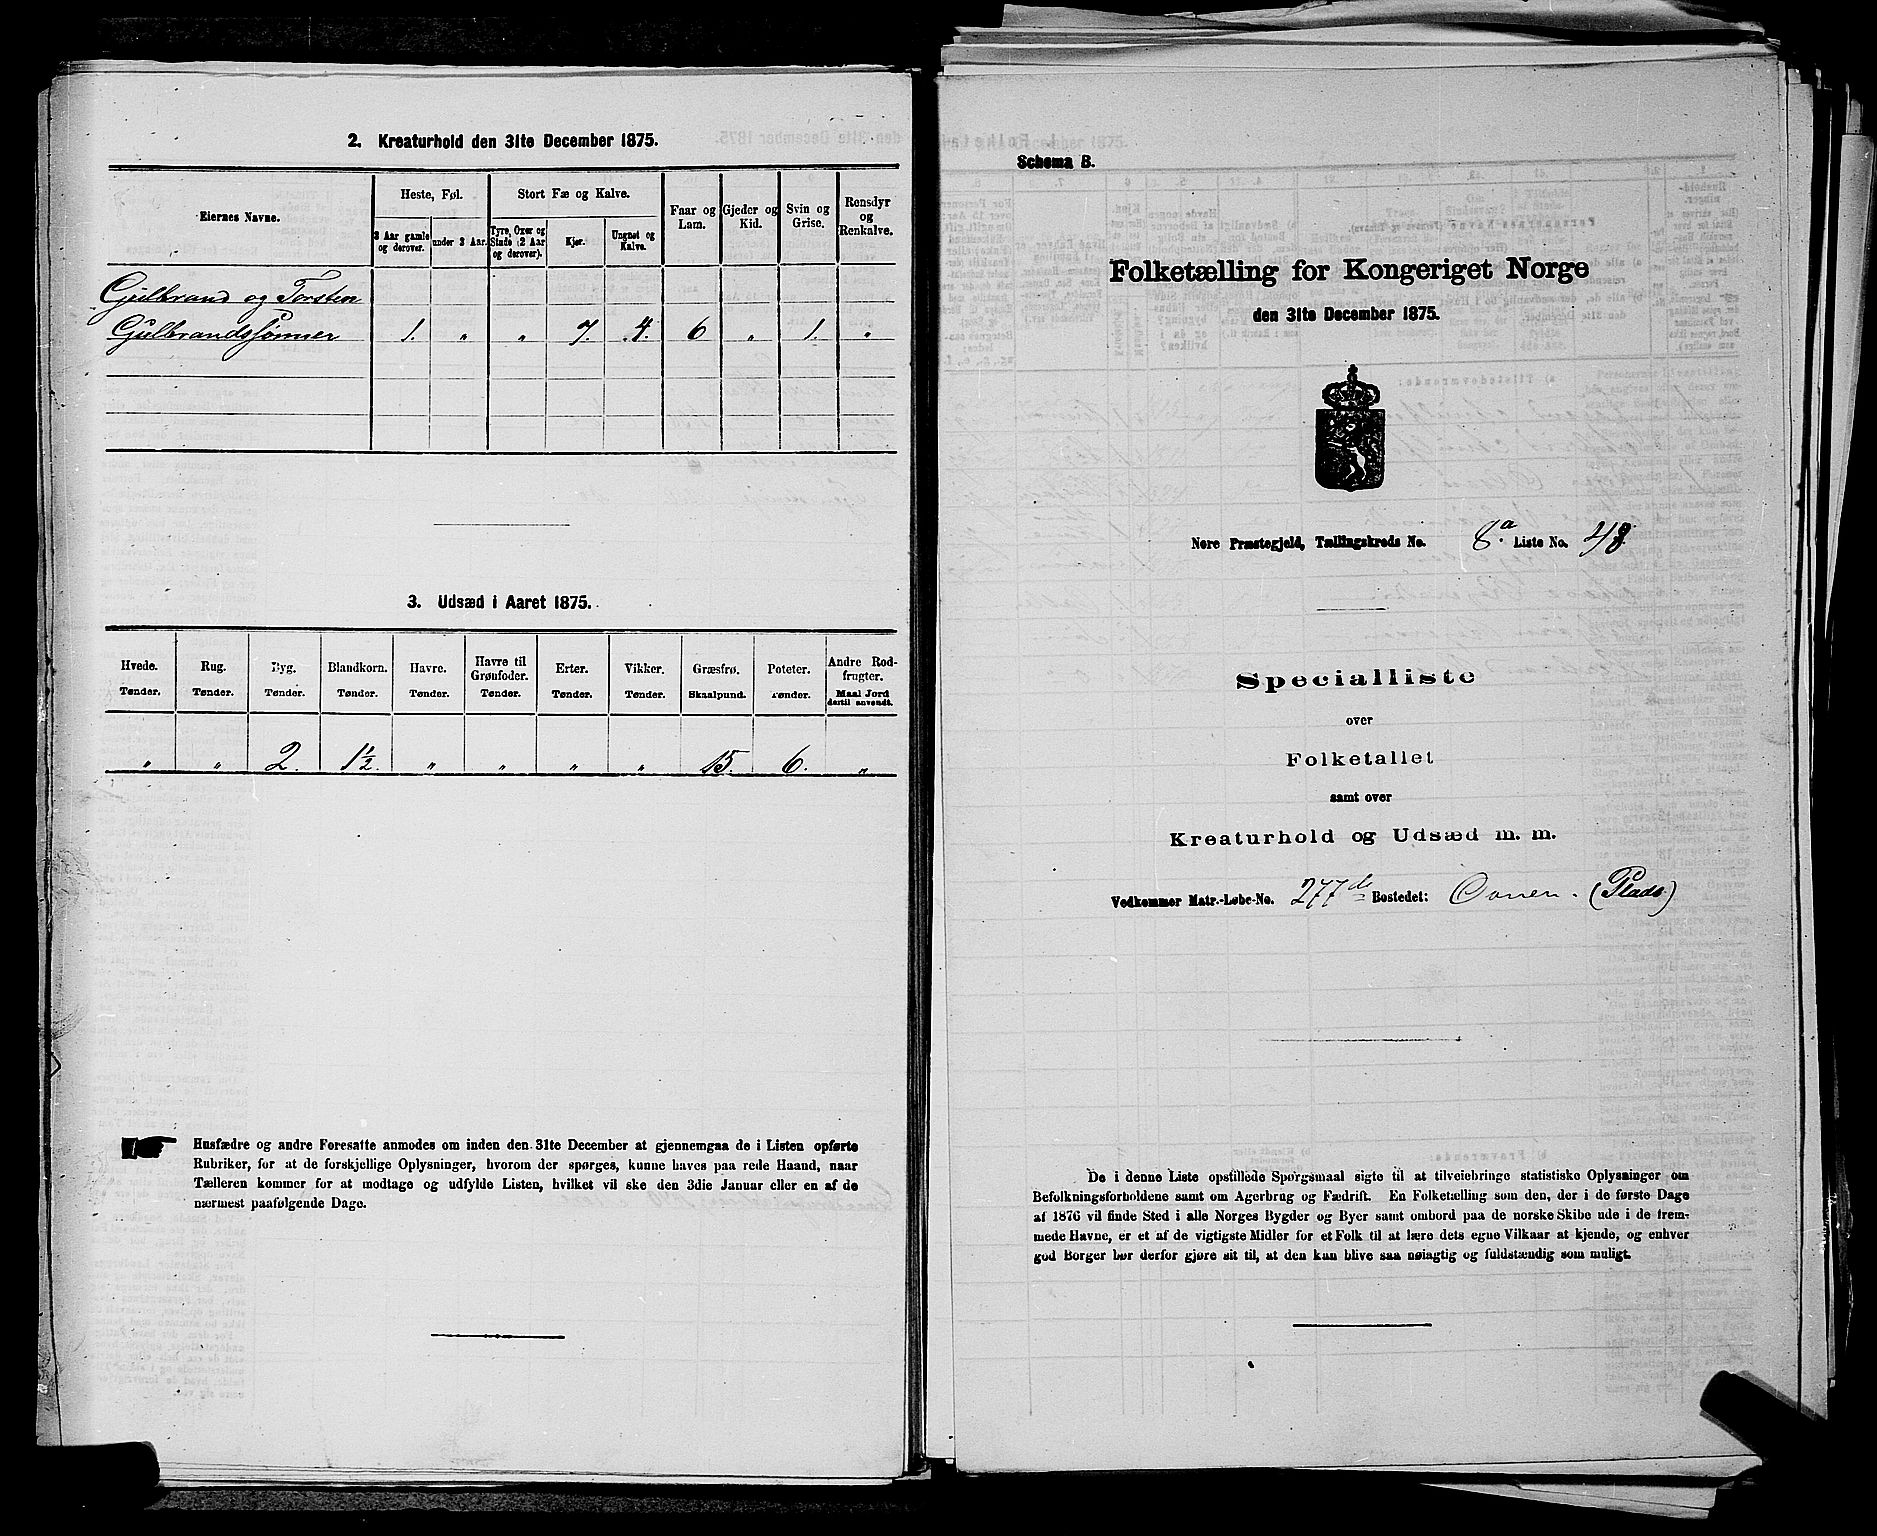 2. Kreaturhold den 31te December 1875.
Eiernes Navne.
Heste, Føl.
3 Aar gamle og derover.
under 3 Aar.
Stort Fæ og Kalve.
Tyre, Oxer og Stude (2 Aar og derover).
Kjør.
Ungnøt og Kalve.
Faar og Lam.
Gjeder og Kid.
Svin og Grise.
Rensdyr og Renkalve.
Gulbrand og Torsten
Gulbrandssønner 1. " " 7. 4. 6 " 1. "
3. Udsæd i Aaret 1875.
Hvede. Rug. Byg. Blandkorn. Havre. Havre til Grønfoder. Erter. Vikker. Græsfrø. Poteter. Andre Rodfrugter.
Tønder. Tønder. Tønder. Tønder. Tønder. Tønder. Tønder. Tønder. Skaalpund. Tønder. Maal Jord dertil anvendt.
" " 2. 1½. " " " " 15. 6. "
Husfædre og andre Foresatte anmodes om inden den 31te December at gjennemgaa de i Listen opførte
Rubriker, for at de forskjellige Oplysninger, hvorom der spørges, kunne haves paa rede Haand, naar
Tælleren kommer for at modtage og udfylde Listen, hvilket vil ske den 3die Januar eller en af de
nærmest paafølgende Dage.
Schema B.
Folketælling for Kongeriget Norge
den 31te December 1875.
Nore Præstegjeld, Tællingskreds No. 8a. Liste No. 48.
Specialliste
over
Folketallet
samt over
Kreaturhold og Udsæd m. m.
Vedkommer Matr.-Løbe-No. 277de Bostedet: (Plads)
De i denne Liste opstillede Spørgsmaal sigte til at tilveiebringe statistiske Oplysninger om
Befolkningsforholdene samt om Agerbrug og Fædrift. En Folketælling som den, der i de første Dage
af 1876 vil finde Sted i alle Norges Bygder og Byer samt ombord paa de norske Skibe ude i de frem-
mede Havne, er et af de vigtigste Midler for et Folk til at lære dets egne Vilkaar at kjende, og enhver
god Borger bør derfor gjøre sit til, at den kan blive saa nøiagtig og fuldstændig som muligt.